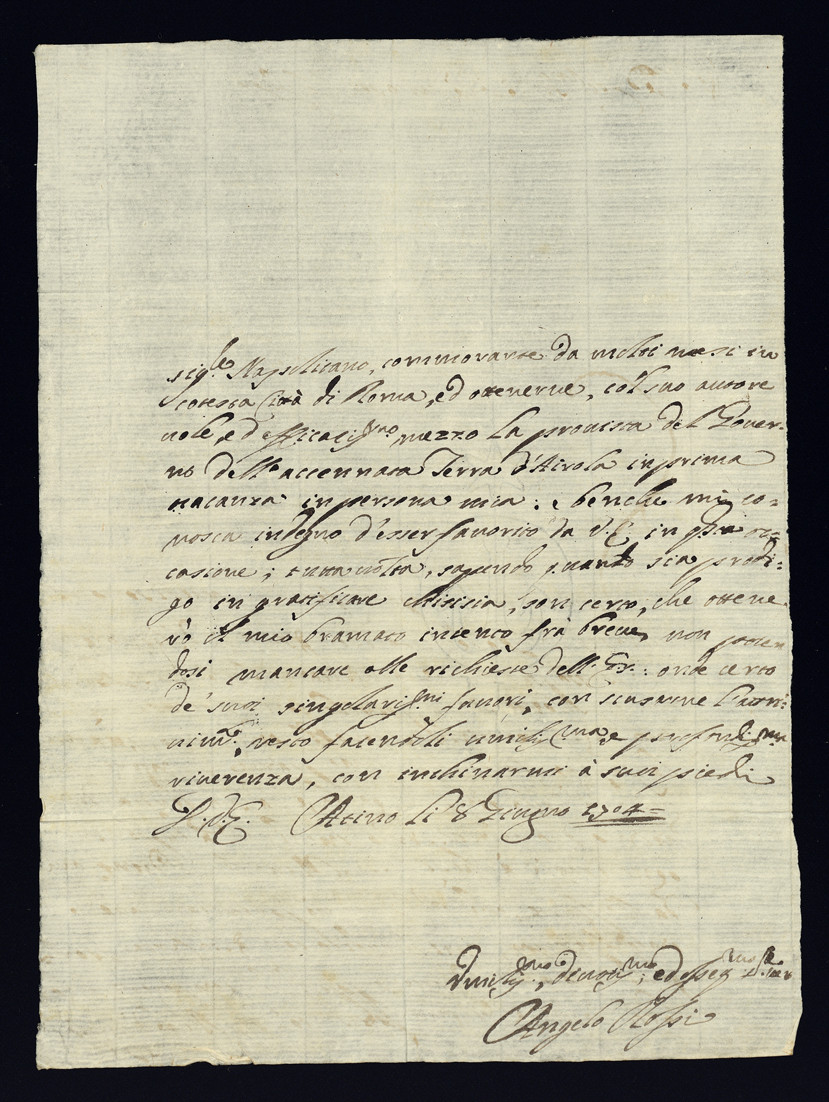 sig.le Napolitano, commorante da molti mesi in
cotesta Città di Roma, ed ottenerne, co'l suo autore
uole, ed efficaciss.mo mezzo la prouista del Gouer-
no dell'accennata Terra d'Airola in prima
uacanza in persona mia. e benche mi co-
nosca indegno d'esser fauorito da V.E. in q.sta oc-
casione; tutta uolta, sapendo quanto sia prodi-
go in gratificare chisisia, son certo, che ottene
rò il mio bramato intento frà breue, non poten
dosi mancare alle richieste dell' onde certo
de' suoi singolariss.mi fauori, con
resto facendoli umiliss.ma, e profondiss.ma
riuerenza, con inchinarmi à suoi piedi
D. V.E. Atino li 8 Giugno 1704=
Vmiliss.mo, deuotiss.mo, ed osseq.mo
Angelo Rossi